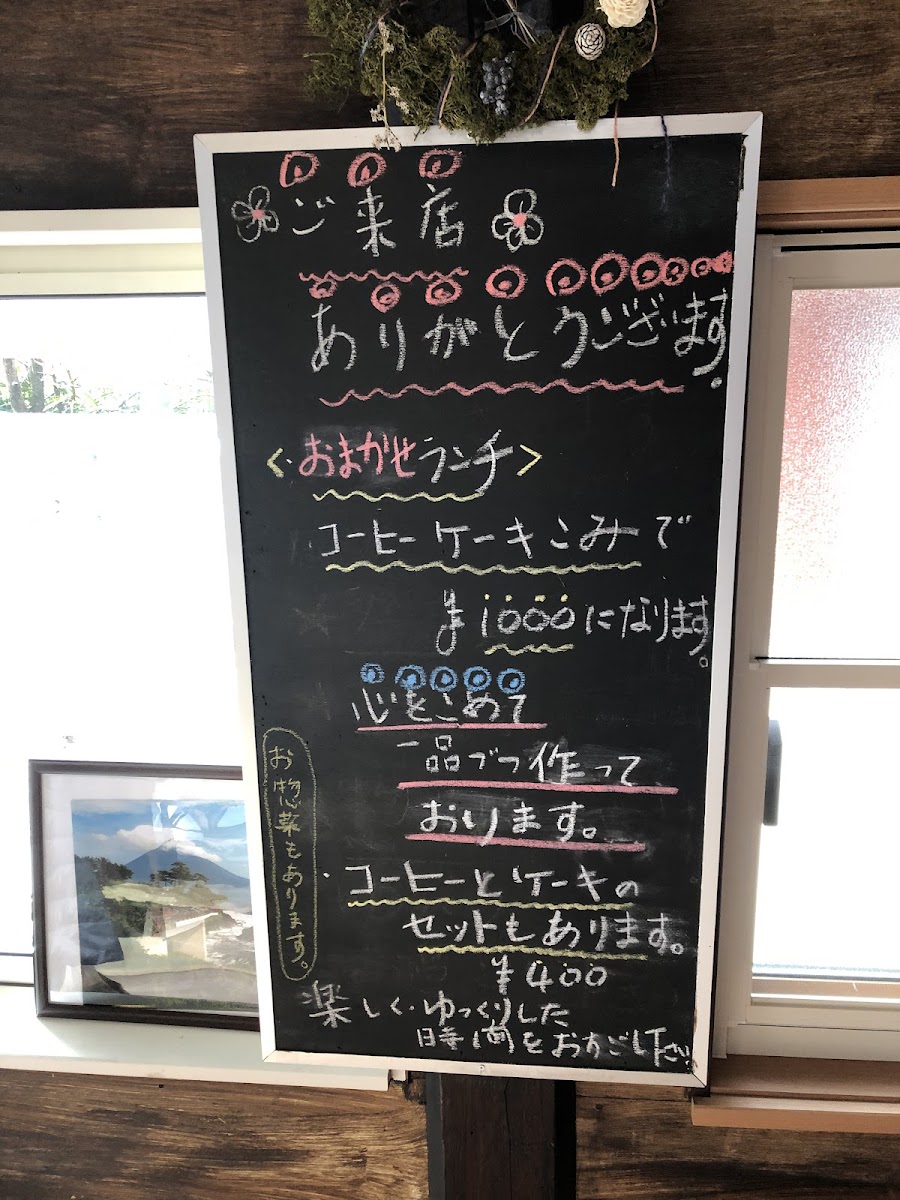 ご来店
ありがとうございます。
<おまかせランチ>
コーヒーケーキこみで
¥1000になります。
心をこめて
一品づつ作って
おります。
お惣菜もあります。
・コーヒーとケーキの
セットもあります。
¥400
楽しくゆっくりした
時間をおすごし下さい